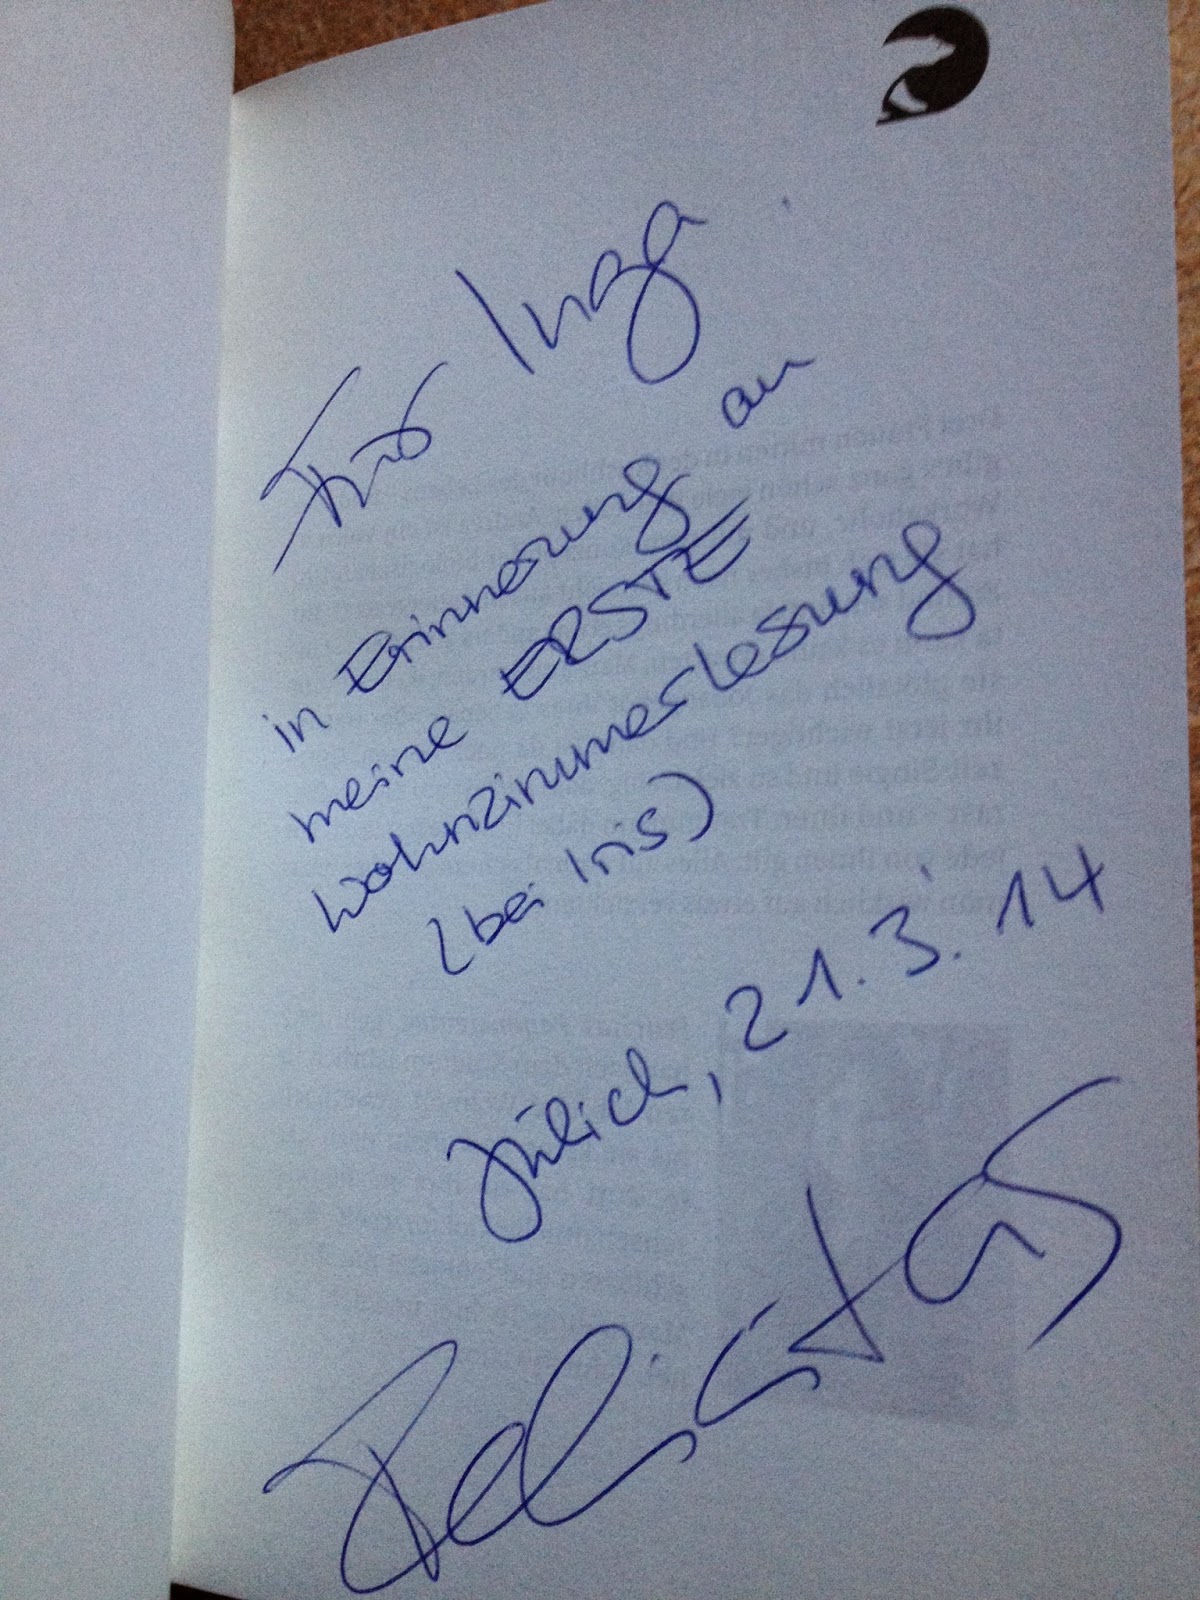 Für Inga
in Erinnerung an
meine ERSTE
Wohnzimmerlesung
(bei Iris)
Jülich, 21.3.14
Felicitas